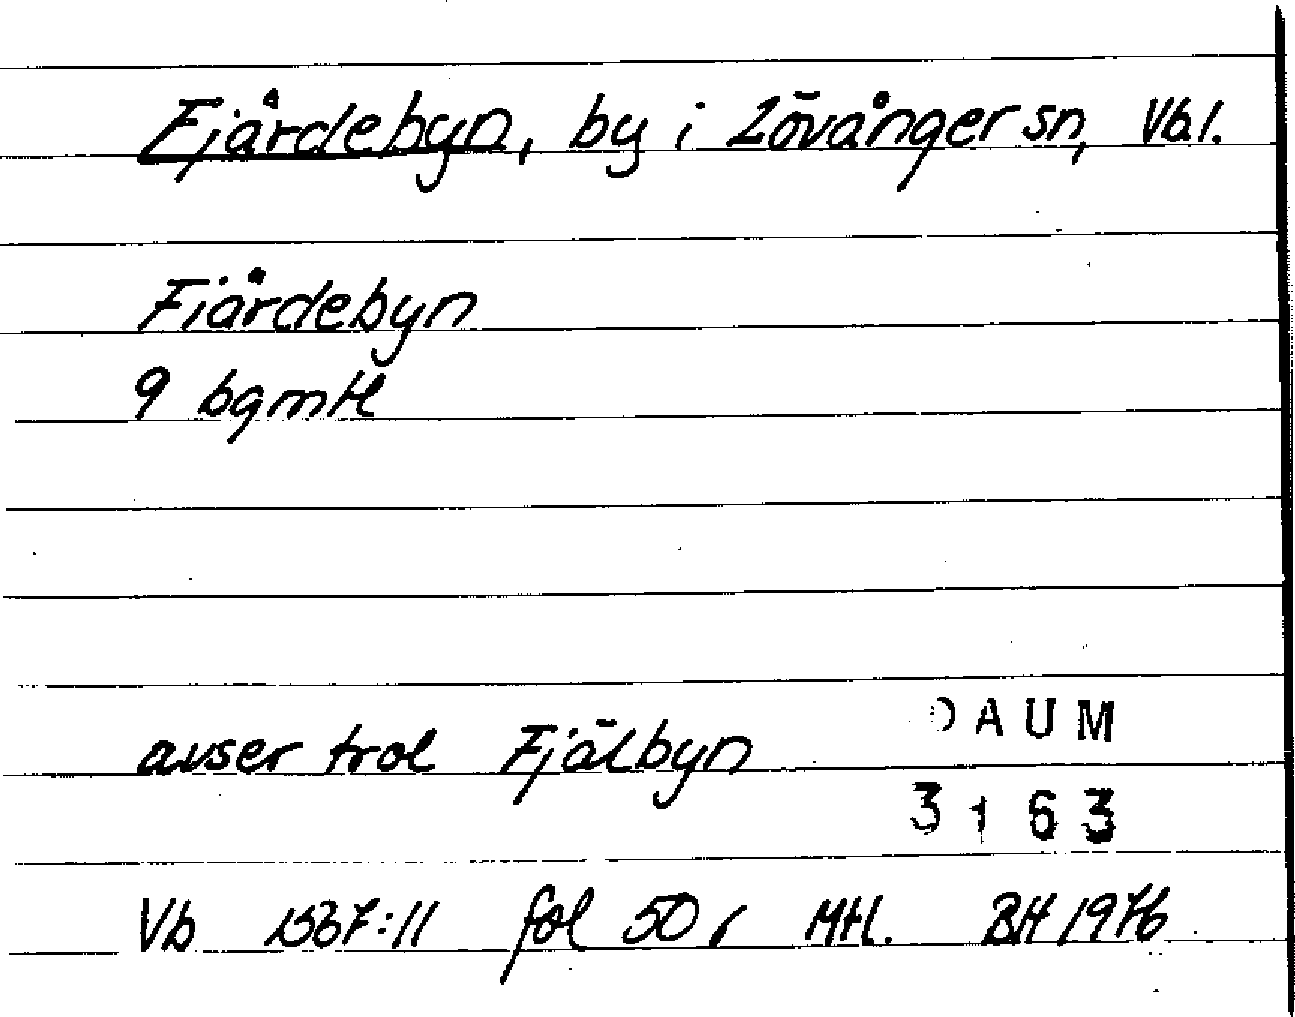 Fjårdebyn, by i Lövånger sn, Vb.l.
Fiårdebyn
9 bgmtl
avser trol Fjälbyn
DAUM
3163
Vb 1567:11 fol 50 r Mtl. BH 1976